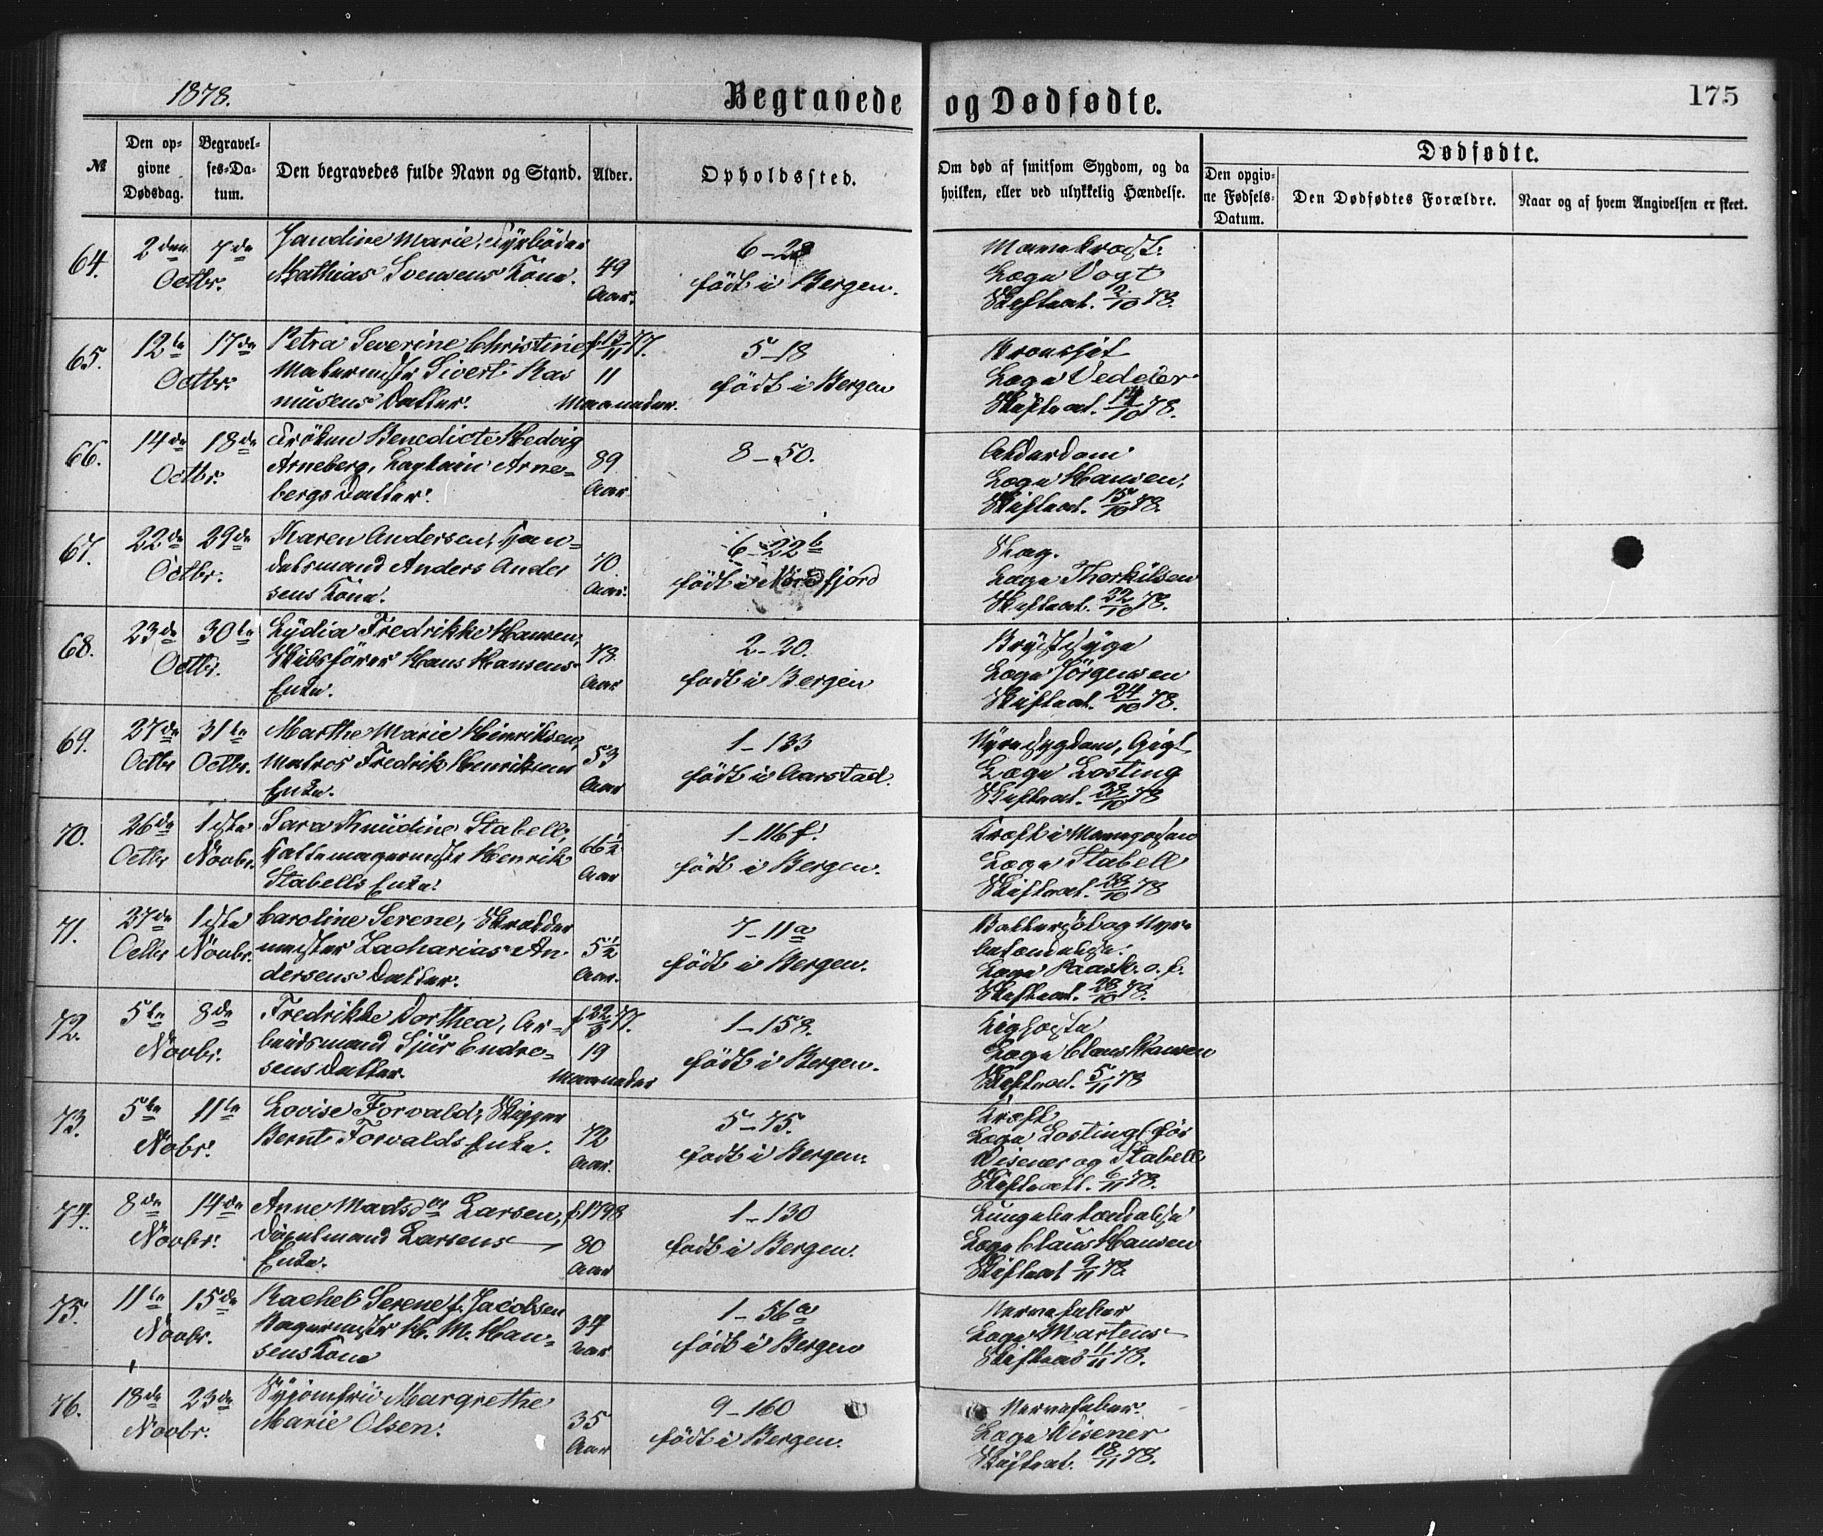 1878.
Begravede og Dødfødte.
175
№
Den opgivne Dødsdag.
Begravelses-Datum.
Den begravedes fulde Navn og Stand.
Alder.
Opholdssted.
Om død af smitsom Sygdom, og da hvilken, eller ved ulykkelig Hændelse.
Dødfødte.
Den opgivne Fødsels-Datum.
Den Dødfødtes Forældre.
Naar og af hvem Angivelsen er skeet.
64. 2den 7de Octbr.
Jandine Marie, Fyrböder
Mathias Svensens Kone.
49 Aar.
6-28
född i Bergen.
Læge Vogt
Skifteat. 2/10 78.
65. 12te 17de Octbr.
Petra Severine Christine
Malermester Sivert Ras
musens Datter.
f 13/11 77.
11 Maaneder.
5-18
född i Bergen
Læge Vedeler
Skifteat. 14/10 78.
66. 14de 18de Octbr.
Fröken Benedicte Hedvig
Arneberg, Kaptain Arne-
bergs Datter.
89 Aar.
8-50.
Alderdom
Læge Hansen,
Skifteat. 15/10 78.
67. 22de 29de Octbr.
Karen Andersen, Han-
delsmand Anders Ander
sens Kone.
70 Aar.
6-22b
född i Nordfjord
Slag.
Læge Thorkilsen
Skifteat. 22/10 78.
68. 23de 30te Octbr.
Lydia Fredrikke Hansen,
Skibsförer Hans Hansens
Enke.
78. Aar
2-20.
född i Bergen
Brystsyge
Læge Jörgensen
Skifteat. 24/10 78.
69. 27de Octbr 31te Octbr.
Marthe Marie Heinriksen,
Matros Fredrik Henriksens
Enke.
53 Aar
1-133
född i Aarstad.
Nyresygdom, Gigt
Læge Losting
Skifteat. 28/10 78
70. 26de Octbr 1ste Novbr.
Sara Knudine Stabell,
Hattemagermester Henrik
Stabells Enke.
66 1/2 Aar
1-116f.
född i Bergen.
Kræft i Mavegosen
Læge Stabell
Skifteat. 28/10 78
71. 27de Octbr 1ste Novbr.
Caroline Serene, Skrædder
mester Zacharias An-
dersens Datter.
5 1/2 Aar.
7-11a
född i Bergen.
betændelse.
Læge Paask. o. f.
Skifteat. 28/10 78.
72. 5te 8de Novbr.
Fredrikke Dorthea, Ar-
beidsmand Sjur Endre-
sens Datter.
19 Maaneder
1-158.
född i Bergen.
Kighoste
Læge Claus Hansen
Skifteat. 5/11 78
73. 5te 11te Novbr.
Lovise Forvald, Skipper
Bernt Forvalds Enke.
72 Aar.
5-75.
född i Bergen.
Kræft
Læge Losting (för
Wisener og Stabell
Skifteatt. 6/11 78.
74. 8de 14de Novbr.
Anne Madsdr Larsen,
Larsens
Enke.
f. 1798
80 Aar
1-130
född i Bergen.
Lungebetændelse
Læge Claus Hansen
Skifteat 9/11 78.
75. 11te 15de Novbr.
Rachel Serene f. Jacobsen
Bagermester H. M. Han-
sens Kone
37 Aar
1-56a
född i Bergen
Nervefeber
Læge Martens
Skifteat 11/11 78.
76. 18de 23de Novbr.
Syjomfru Margrethe
Marie Olsen.
35 Aar
9-160
född i Bergen.
Nervefeber.
Læge Wisener
Skifteat. 18/11 78.